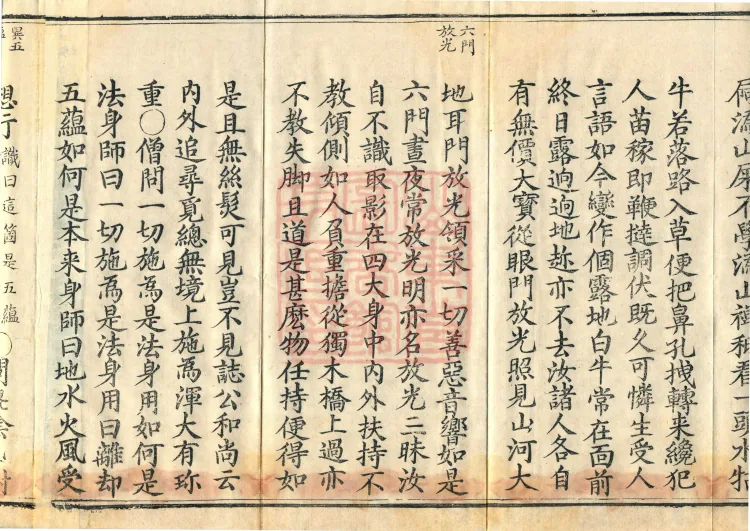 山屎不學山看一頭水牯
牛若落路入草便把鼻孔拽轉来纔犯
人苗稼即鞭撻調伏既久可憐生受人
言語如今變作個露地白牛常在面前
終日露逈逈地趂亦不去汝諸人各自
有無價大寶從眼門放光照見山河大
六門
放光
地耳門放光領采一切善惡音響如是
六門晝夜常放光明亦名放光三昧汝
自不識取影在四大身中内外扶持不
教傾側如人負重擔從獨木橋上過亦
不教失脚且道是甚麽物任持便得如
是且無絲髮可見豈不見誌公和尚云
内外追尋覓總無境上施為渾大有珎
重〇僧問一切施為是法身用如何是
法身師曰一切施為是法身用曰離却
五蘊如何是本来身師曰地水火風受
異五
想行識曰這箇是五蘊〇問